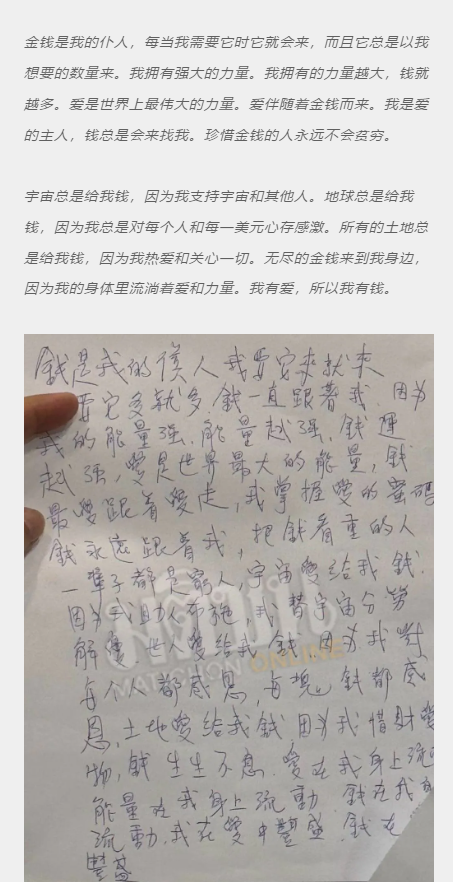 金钱是我的仆人，每当我需要它时它就会来，而且它总是以我
想要的数量来。我拥有强大的力量。我拥有的力量越大，钱就
越多。爱是世界上最伟大的力量。爱伴随着金钱而来。我是爱
的主人，钱总是会来找我。珍惜金钱的人永远不会贫穷。
宇宙总是给我钱，因为我支持宇宙和其他人。地球总是给我
钱，因为我总是对每个人和每一美元心存感激。所有的土地总
是给我钱，因为我热爱和关心一切。无尽的金钱来到我身边，
因为我的身体里流淌着爱和力量。我有爱，所以我有钱。
錢是我的僕人 我要它來就來
要它多就多.錢一直跟著我.因为
我的能量强.能量越强.錢運
越强,愛是世界最大的能量,錢
最愛跟着愛走,我掌握愛的密碼
錢永遠跟着我,把錢看重的人
一輩子都是窮人.宇宙愛給我錢.
因为我助人布施,我替宇宙分勞
解憂 世人愛給我錢 因为我對
每个人都感恩,每塊錢都感
恩,土地愛給我錢.因为我惜財愛
物,錢生生不息.愛在我身上流
能量在我身上流動.錢在我
流動.我在愛中豐盛.錢在
豐盛
MATICHON ONLINE